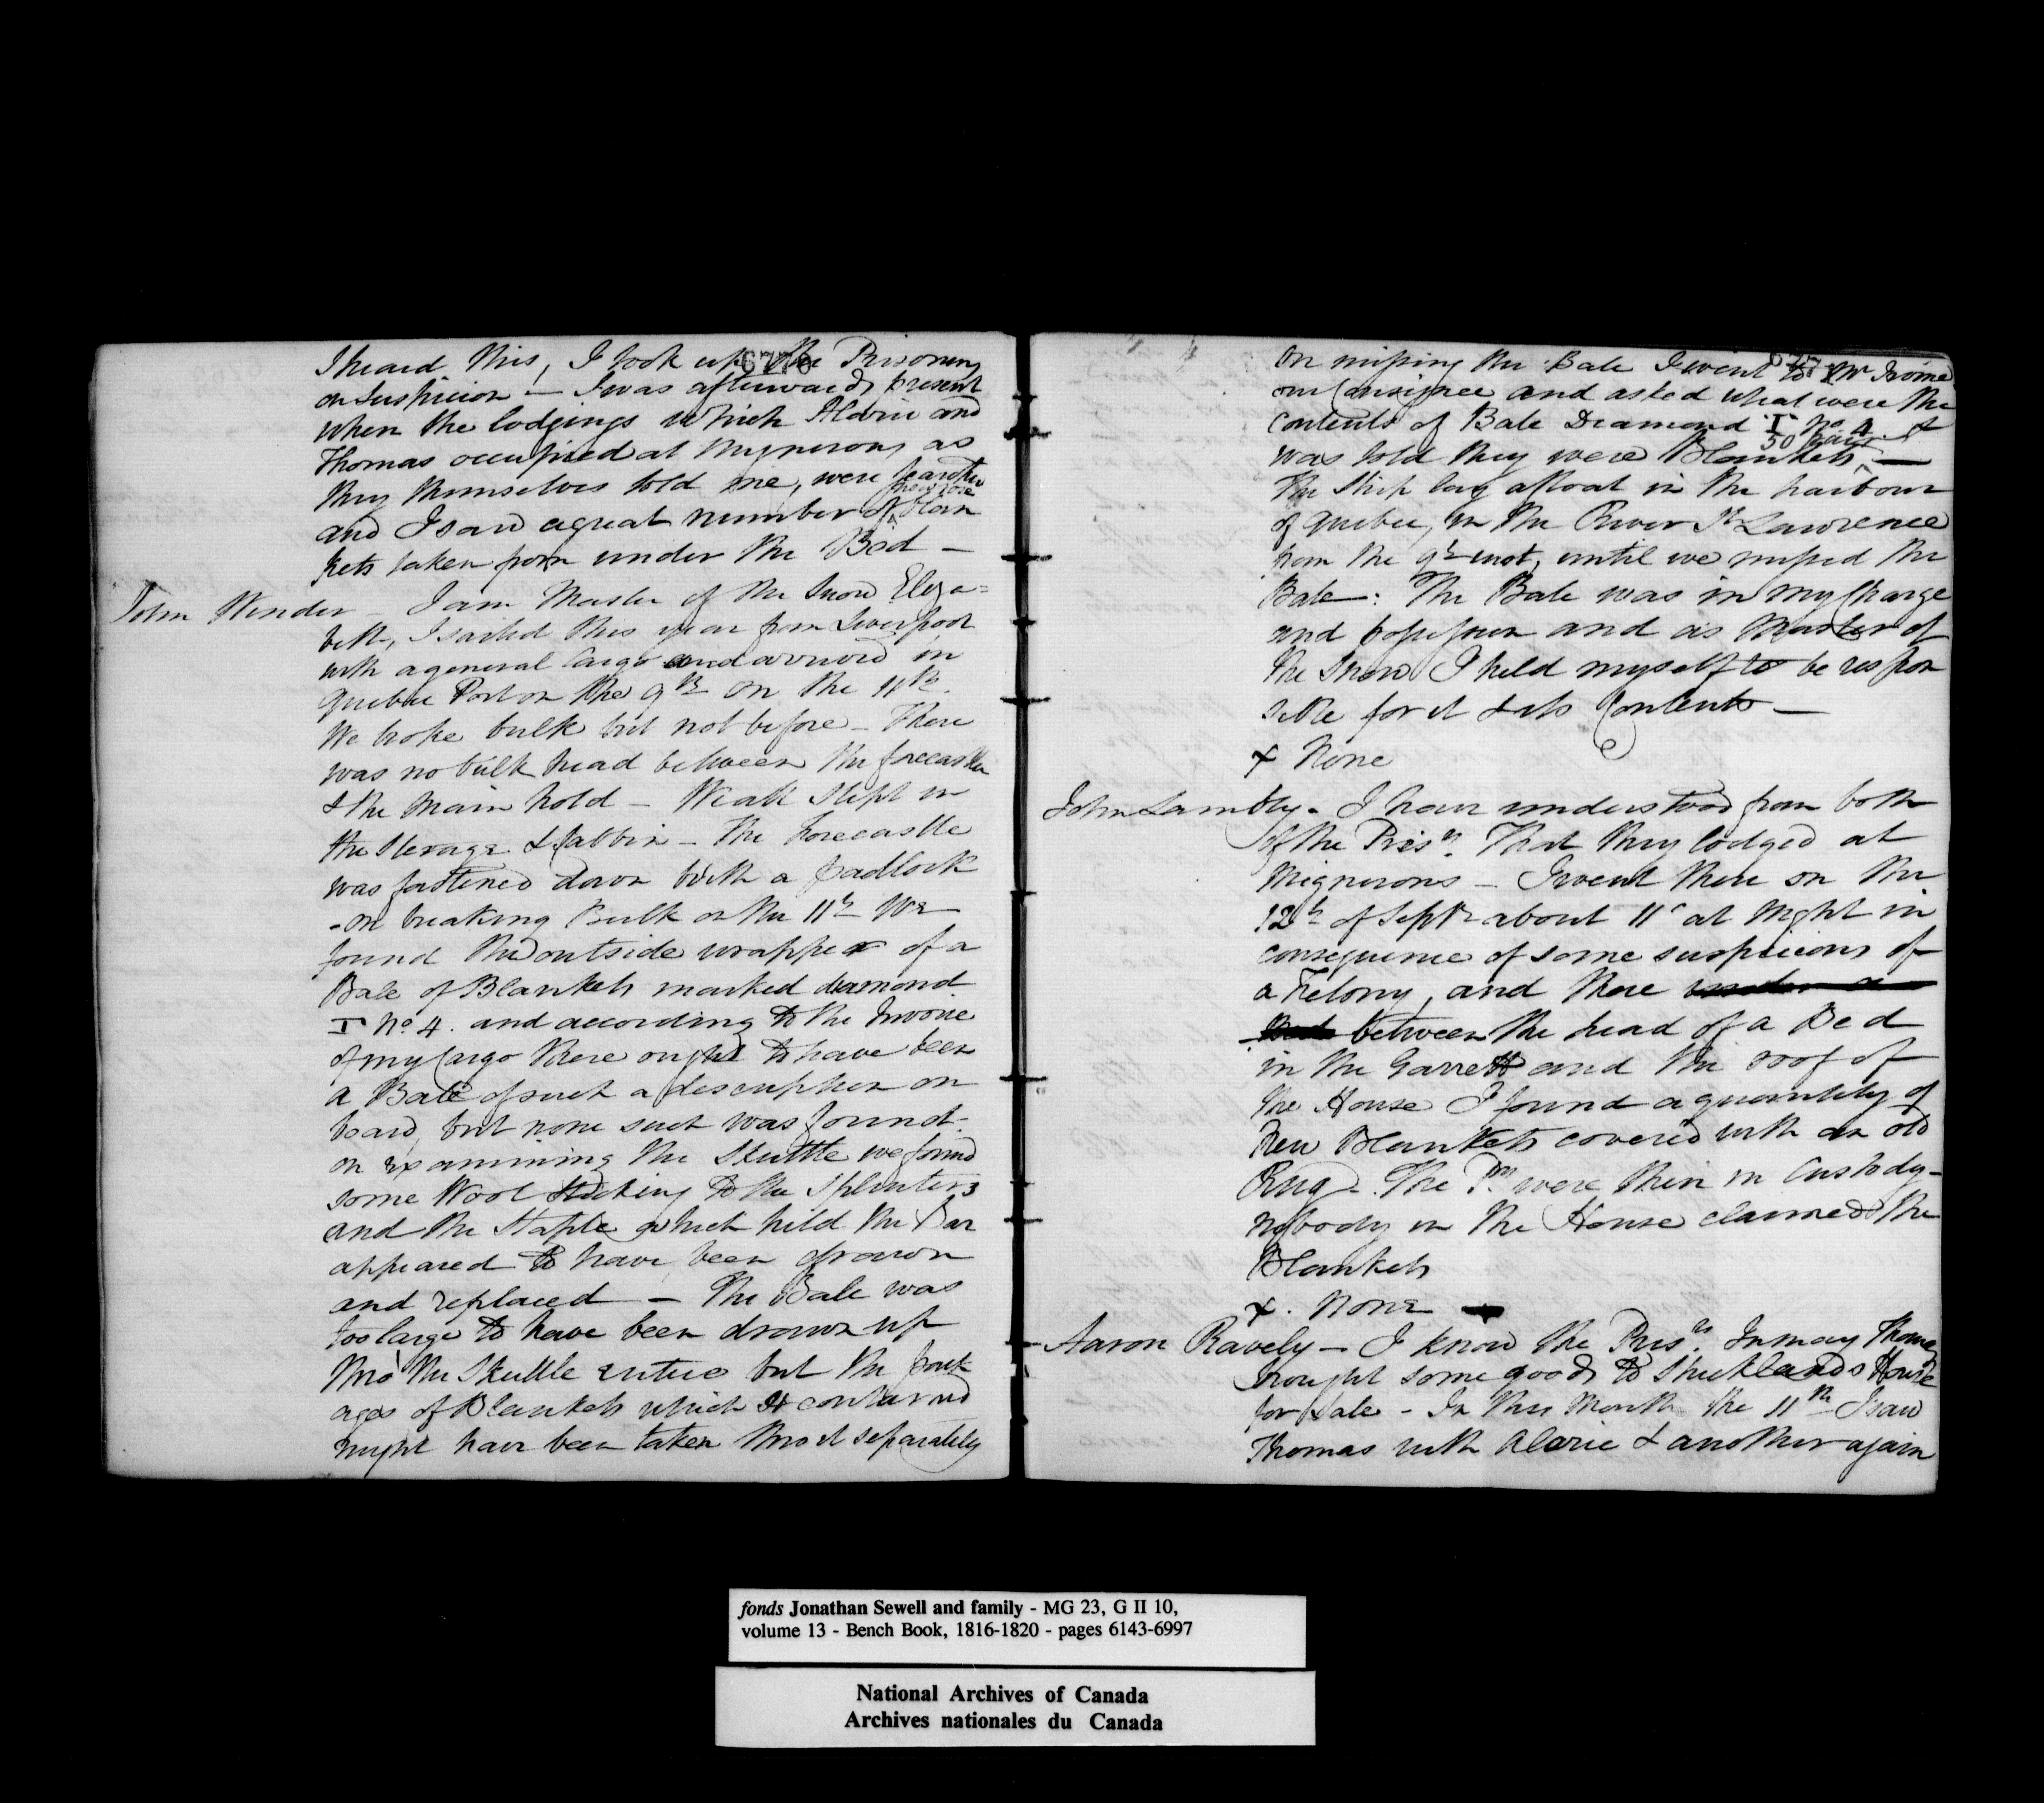 6776
I heard this, I took up the Prisoners
on Suspicion — I was afterwards present
when the lodgings which Alarie and
Thomas occupied at Mignerons as
they themselves told me, were
and I saw a great number of Blan
kets taken from under the Bed —
John Winder — I am Master of the Snow Eliza=
beth, I sailed this year from Liverpool
with a general Cargo and arrived in
Quebec Port on the 9th on the 11th.
We broke bulk but not before — There
was no bulk head between the forecastle
& the main hold — We all slept in
the Sterage & Cabbin — The Forecastle
was fastened down with a padlock
- on breaking Bulk on the 11th We
found the outside wrapper of a
Bale of Blankets marked diamond
I No 4. and according to the Invoice
of my Cargo there ought to have been
a Bale of such a description on
board, but none such was found -
on examining the Skuttle we found
some Wool sticking to the Splinters
and the Staple which held the Bar
appeared to have been drawn
and replaced — The Bale was
too large to have been drawn up
thro' the Skuttle entire but the pack
ages of Blankets which it contained
might have been taken thro it separately
on missing the Bale I went to Mr
our Consignee and asked what were the
contents of Bale Diamond I No 4. &
50 pairs
was told they were Blankets —
The Ship lay afloat in the harbour
of Quebec, in the River St Lawrence
from the 9th inst, until we missed the
Bale. The Bale was in my Charge
and possession and as Master of
the Snow I held myself to be respon
sible for it & its Contents —
x None
John Lambly - I have understood from both
of the Prisrs. That they lodged at
Mignerons — I went there on the
12th of Septr about 11 at Night in
consequence of some suspicions of
a Felony, and there under a
Bed between the head of a Bed
in the Garrett and the roof of
the House I found a quantity of
New Blankets covered with an old
Rug - The Prs were then in Custody -
nobody in the House claimed the
Blankets
x. None
Aaron Ravely — I know the Prisrs. In may Thomas
brought some goods to House
for Sale - In this Month the 11th I saw
Thomas with Alarie & another again
fonds Jonathan Sewell and family - MG 23, G II 10,
volume 13 - Bench Book, 1816-1820 - pages 6143-6997
National Archives of Canada
Archives nationales du Canada